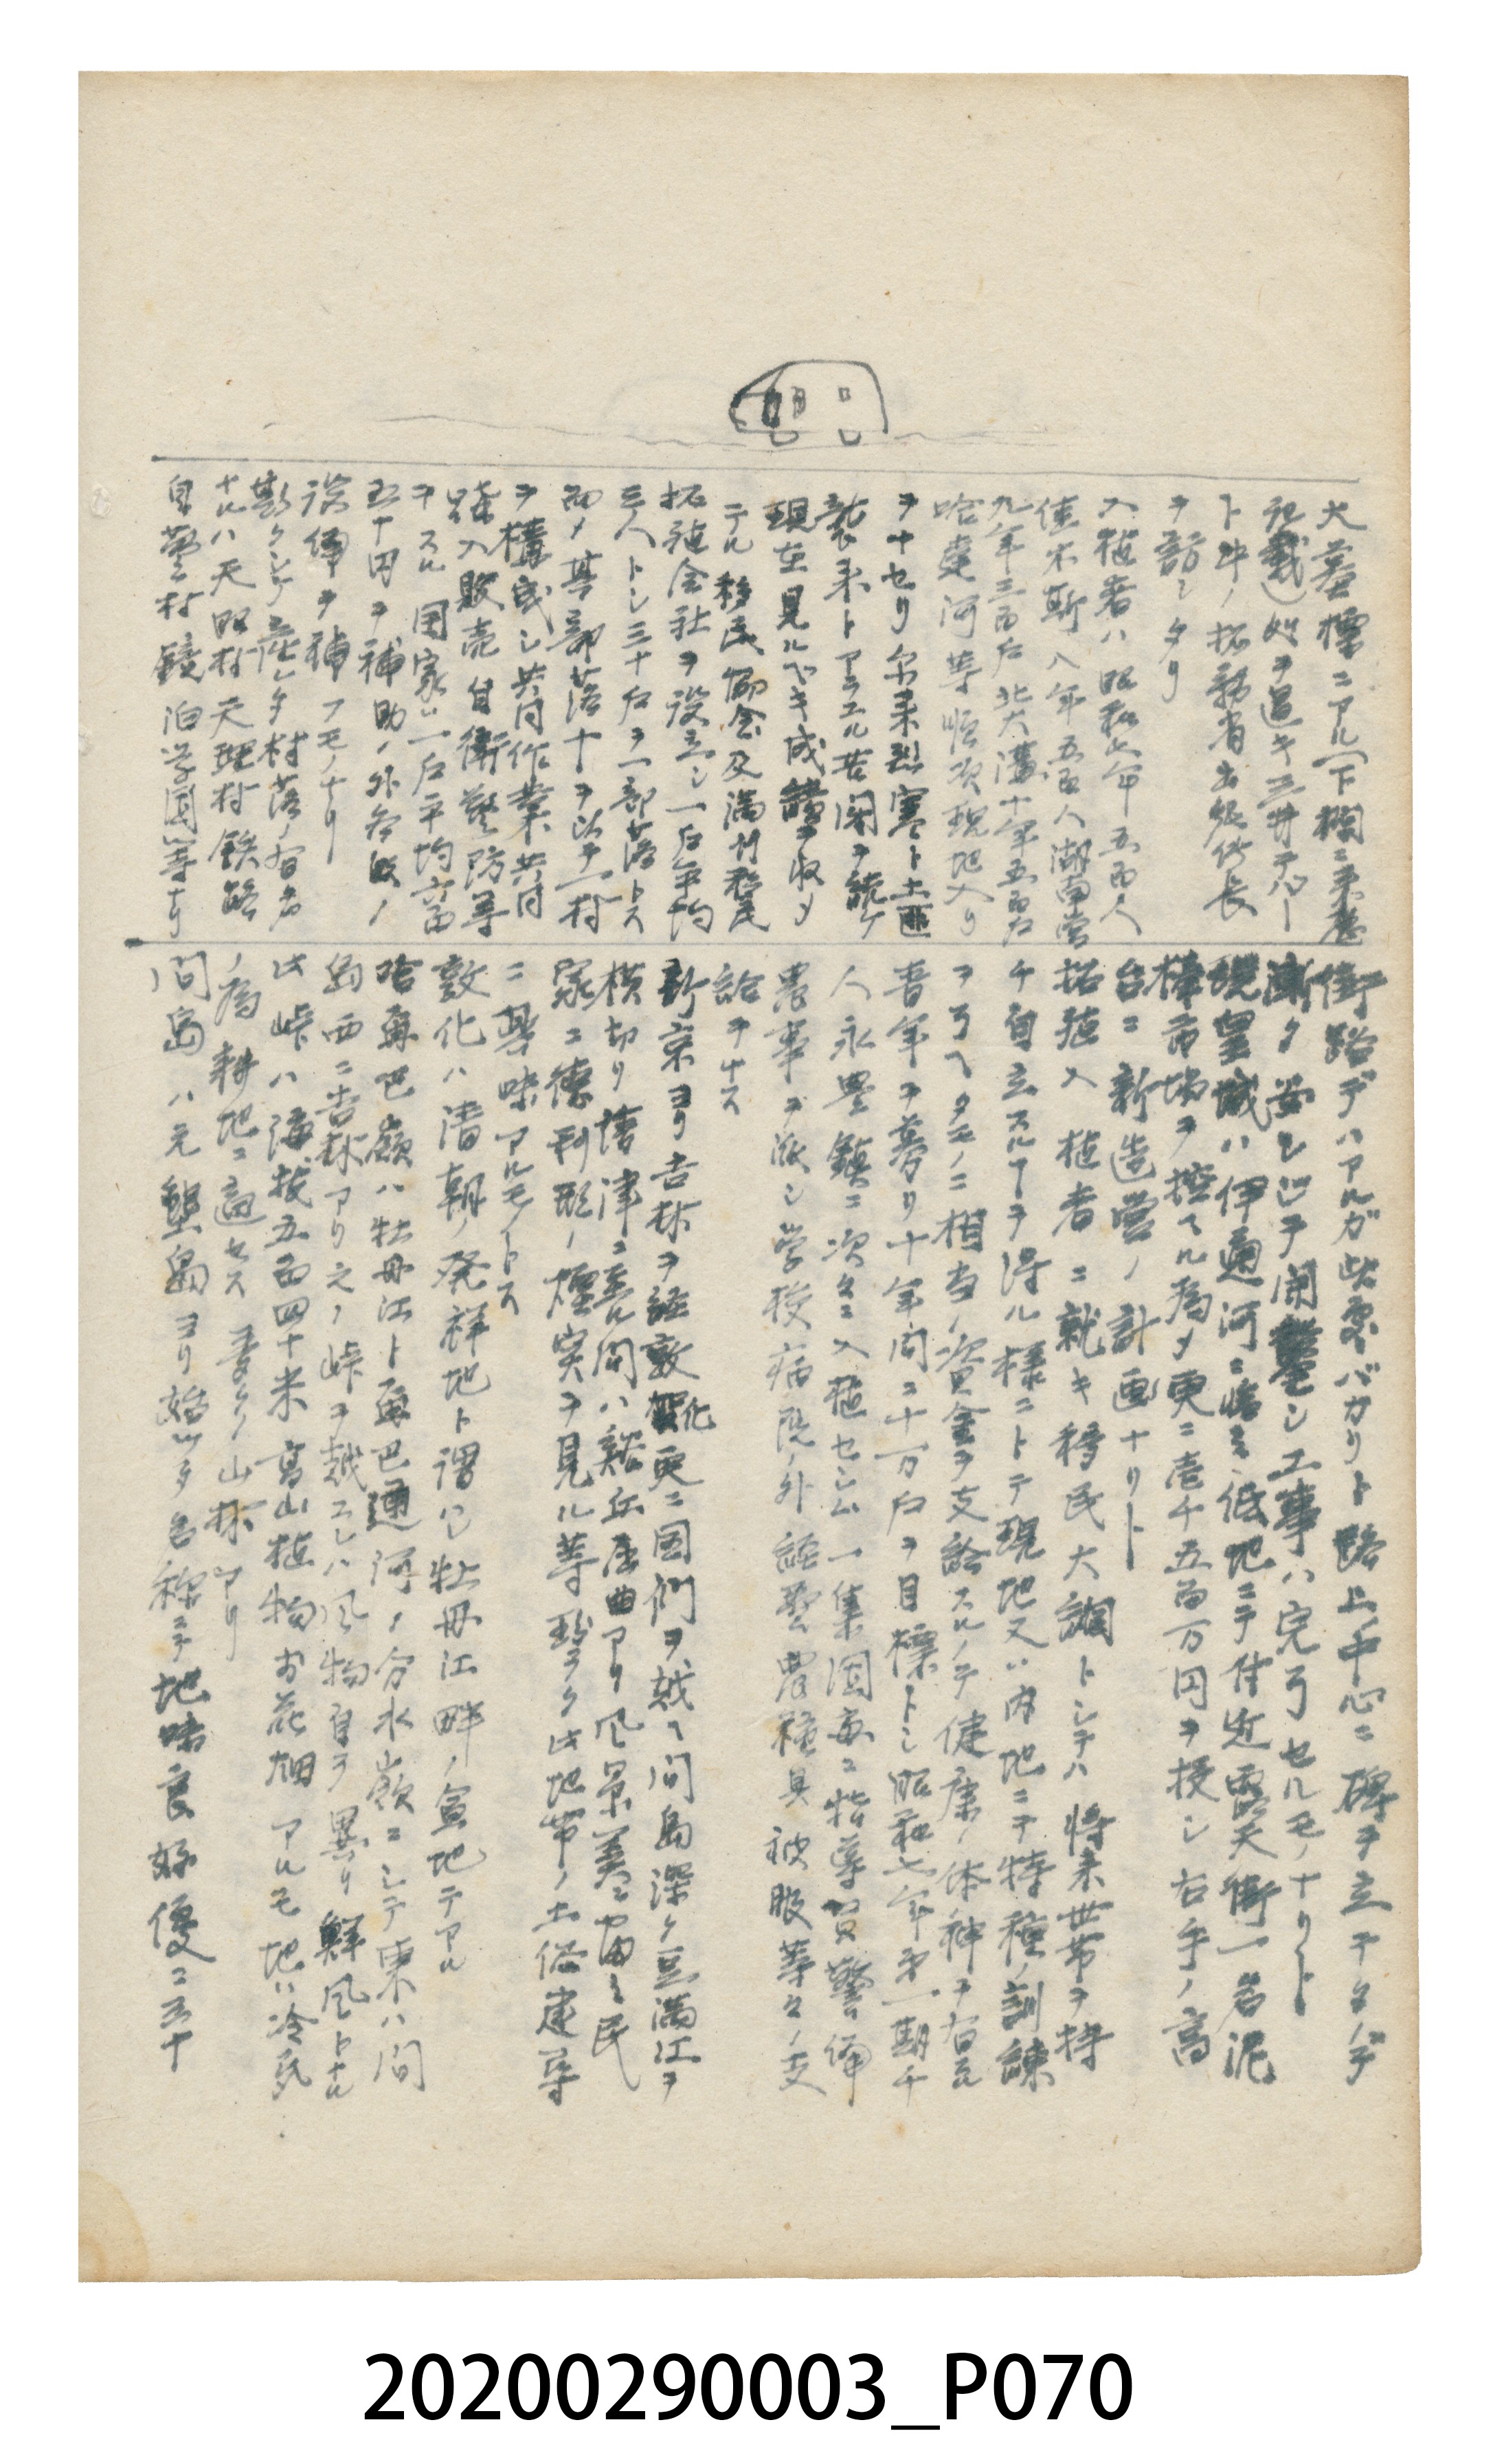 大墓標ニアル(下欄ニ来歴
記載)処ヲ過キ三井デパー
ト外ノ拓務省出張所長
ヲ訪シタリ
入植者ハ昭和七年五百人
佳木斯八年五百人湖南営
九年三百戸北大溝十年五百戸
哈達河等順次現地入リ
ヲナセリ尓来烈寒ト土匪
襲来トアラユル苦闘ヲ続ケ
現在見ルベキ成績ヲ収メ
テル移民協会及満州移民
拓殖会社ヲ設立シ一戸平均
三人トシ三十戸ヲ一部落トス
而メ其部落十ヲ以テ一村
ヲ構成シ共同作業共同
購入販売自衛警防等
ヲスル国家ハ一戸平均六百
五十円ヲ補助ノ外各般ノ
設備ヲ補フモノナリ
斯クシテ産レタ村落ノ有名
ナルハ天照村天理村鉄路
自警村鏡泊学園等ナリ
街路デハアルガ此処バカリト路上ノ中心ニ碑ヲ立テタノデ
漸ク安ンジテ開鑿シ工事ハ完了セルモノナリト
現皇城ハ伊通河ニ臨ミ低地ニテ付近露天街一名泥
棒市場ヲ控ヘル為メ更ニ壱千五百万円ヲ投シ右手ノ高
台ニ新造営ノ計画ナリト
拓殖入植者ニ就キ移民大調トシテハ将来世帯ヲ持
チ自立スルヿヲ得ル様ニトテ現地又ハ内地ニテ特種ノ訓練
ヲ了ヘタモノニ相当ノ資金ヲ支給スルノテ健康ノ体神ヲ有スル
青年ヲ募リ十年間ニ十万戸ヲ目標トシ昭和七年第一期千
人永豊鎮ニ次々ニ入植セシム一集団毎ニ指導員警備
農事ヲ派シ学校病院ノ外諸般農種具被服等々ノ支
給ヲナス
新京ヨリ吉林ヲ経敦化更ニ図們ヲ越ヘ間島深ク豆満江ヲ
横切リ清津ニ至ル間ハ谿丘屈曲アリ風景美ニ富ミ民
家ニ徳利形ノ煙突ヲ見ル等珍ラク此地帯ノ土俗建等
ニ興味アルモノトス
敦化ハ清朝ノ発祥地ト謂ハレ牡丹江畔ノ盆地テアル
哈爾巴嶺ハ牡丹江ト爾巴通河ノ分水嶺ニシテ東ハ間
島西ニ吉林アリ之ノ峠ヲ越エレハ風物自ラ異リ鮮風トナル
此峠ハ海抜五百四十米高山植物お花畑アルモ地ハ冷気
ノ為耕地ニ適セス 麦少ク山林アリ
間島ハ元墾島ヨリ始マタ名称ニテ地味良好優ニ五十
20200290003_P070